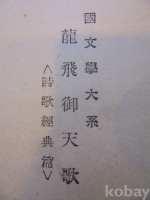 國文學大系
龍飛御天歌
<詩歌經典篇>
kobay